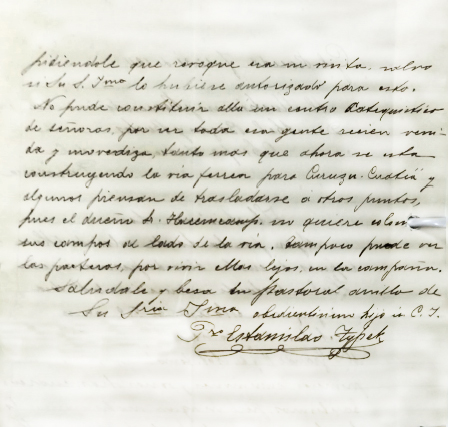 pidiendole que revoque esa su visita, salvo
si Su S. Ilma lo hubiere autorizado para esto.
No pude constituir alla un centro Catequistico
de señoras, por ser toda esa gente recien veni-
da y movediza, tanto mas que ahora se esta
construyendo la via ferrea para Curuzu-Cuatiá y
algunos piensan de trasladarse á otros puntos,
pues el dueño Sr. no quiere
sus campos al lado de la via. Tampoco pude ver
las parteras, por vivir ellas lejos, en la campaña.
Saludale y besa su Pastoral anillo de
Su Sria Ilma obedientisimo hijo in C. J.
Pro Estanislao Zypek